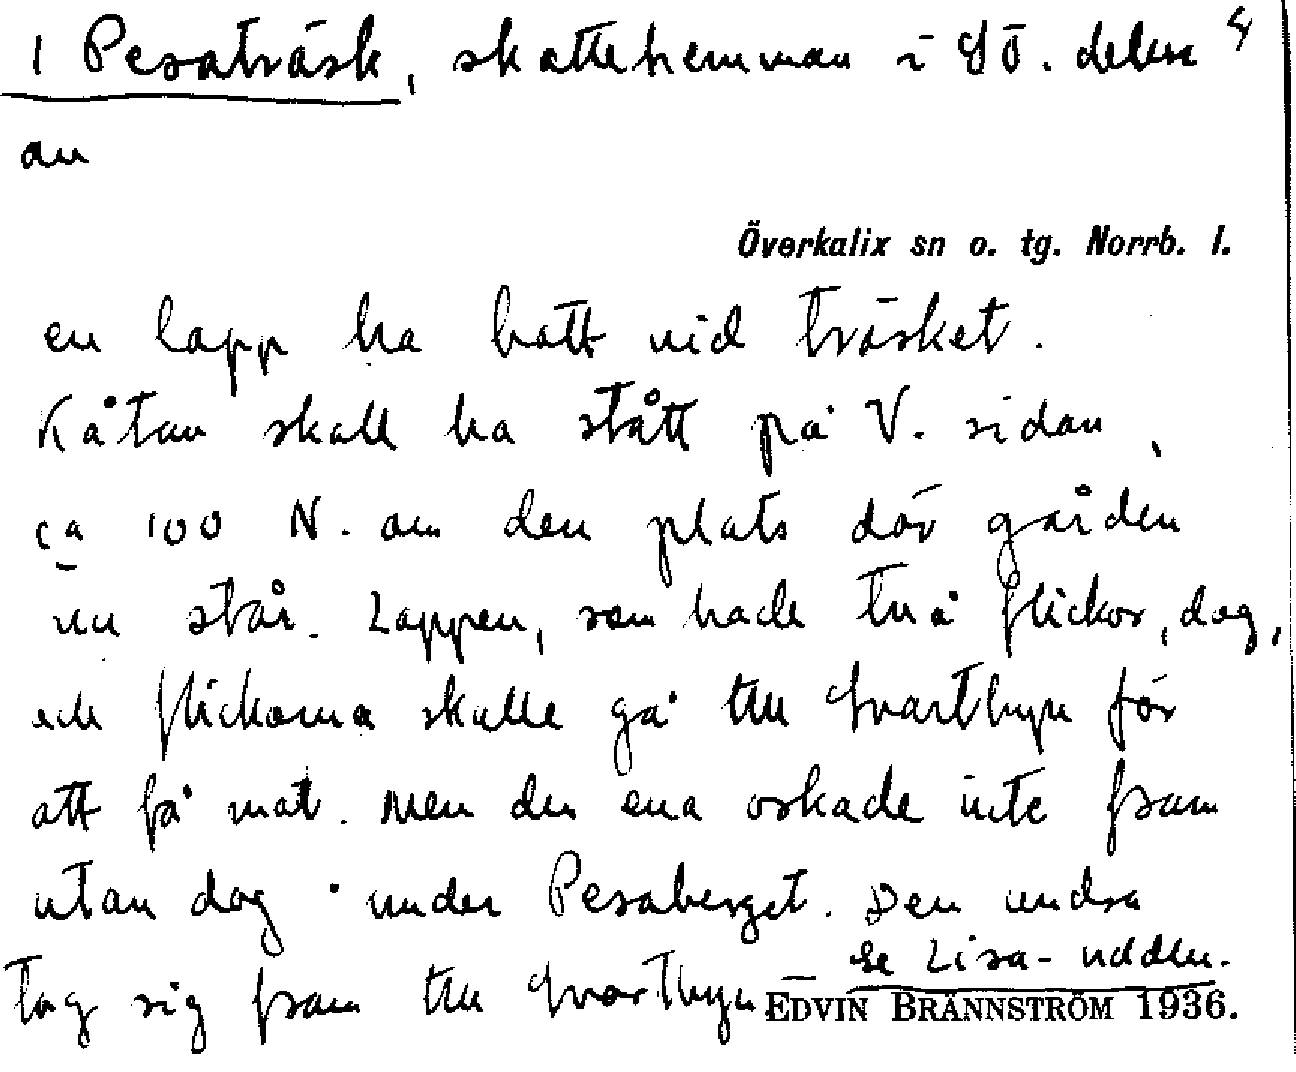 1 Pesaträsk, skattehemman i SÖ. delen 4
av
Överkalix sn o. tg. Norrb. l.
en lapp ha bott vid träsket.
Kåtan skall ha stått på V. sidan,
ca 100 N. om den plats där gården
nu står. Lappen, som hade två flickor, dog,
och flickorna skulle gå till Svartbyn för
att få mat. Men den ena orkade inte fram
utan dog under Pesaberget. Den andra
tog sig fram till Svartbyn
se Lisa-udden.
EDVIN BRÄNNSTRÖM 1936.